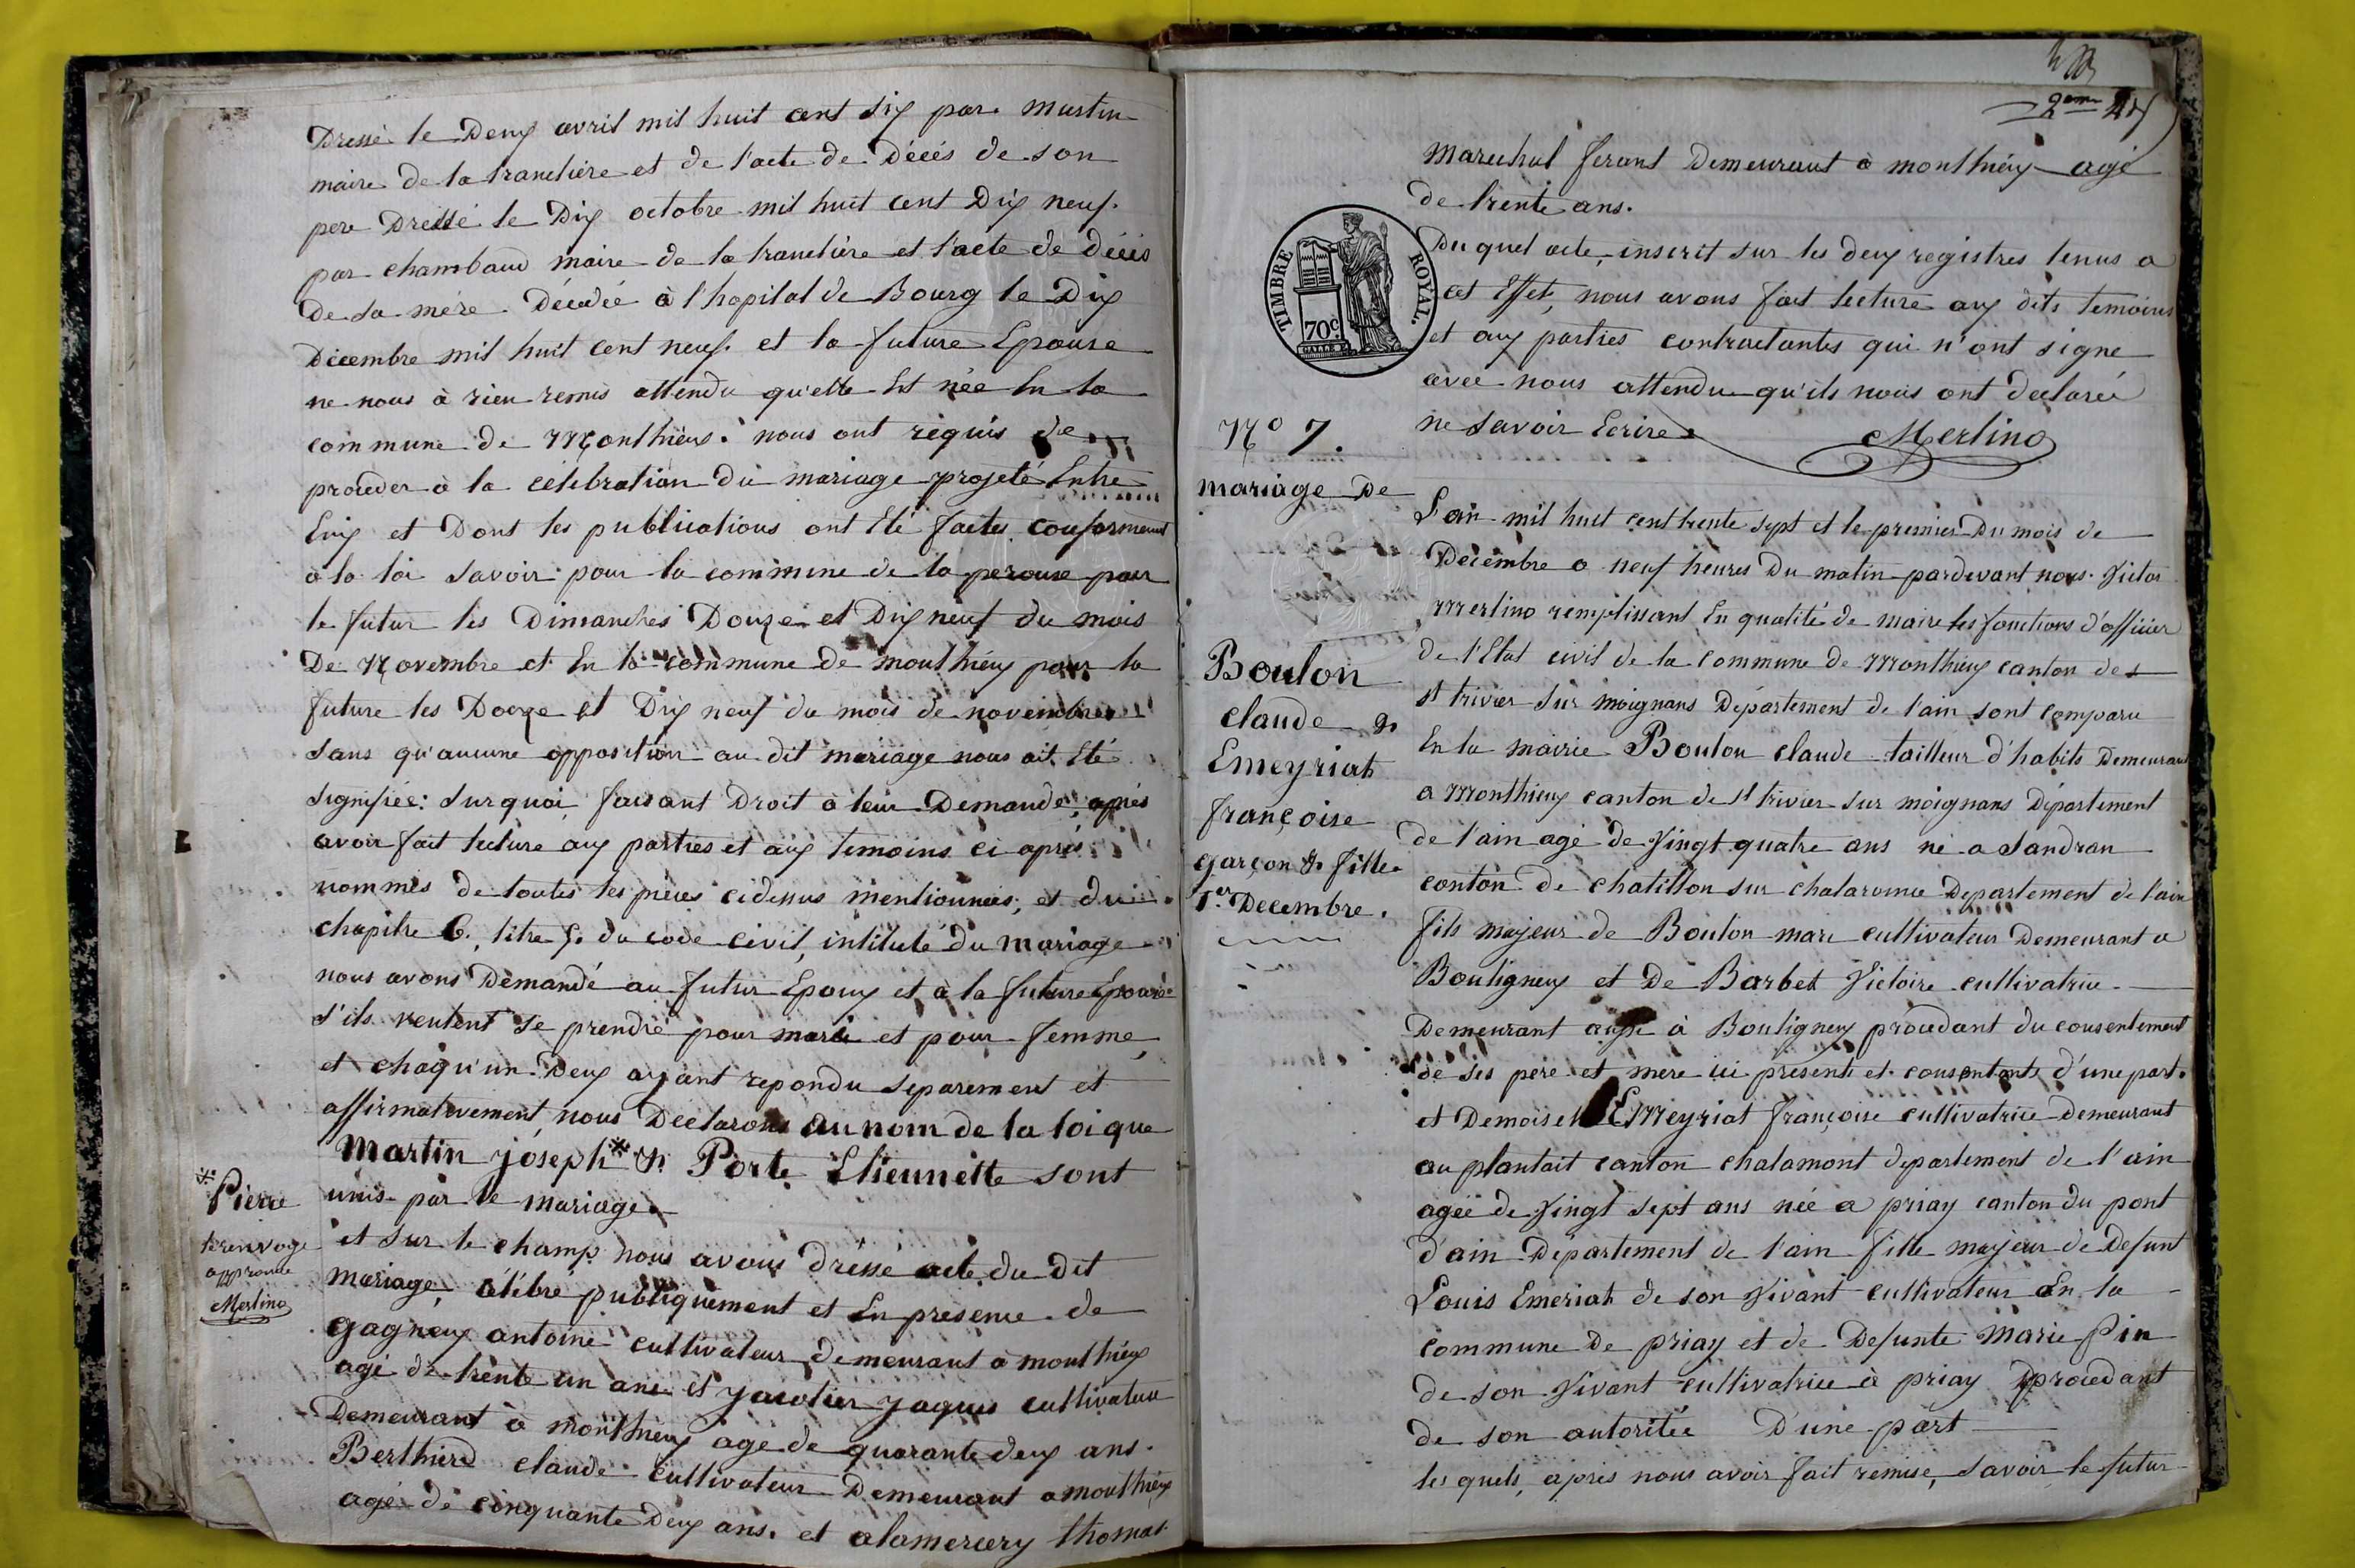 Dressé le Deux avril mil huit cent six par Martin
maire de la tranclière et de l'acte de Décès de son
pere Dressé le Dix octobre mil huit cent Dix neuf.
par chambaud maire de la tranclière et l'acte de décès
De sa mère Décédée à l'hopital de Bourg le Dix
Décembre mil huit cent neuf. et la future Epouse
ne nous à rien remis attendu qu'elle Est née En la
commune de Monthieux. nous ont requis de
procéder à la célébration du mariage projeté Entre
Eux et Dont les publications ont Eté faites conformement
à la loi savoir pour la commune de la perouse pour
le futur les Dimanches Douze et Dix neuf du mois
De Novembre et En la commune de monthieux pour la
future les Douze et Dix neuf du mois de novembre
sans qu'aucune opposition au dit mariage nous ait Eté
signifiée: sur quoi, faisant Droit à leur Demande, après
avoir fait lecture aux parties et aux temoins ci après
nommés de toutes les pièces cidessus mentionnées, et du
chapitre 6., titre 5. du code civil, intitulé du mariage
nous avons Demandé au futur Epoux et à la future Epouse
s'ils veulent se prendre pour mari et pour femme,
et chaqu'un Deux ayant repondu separement et
affirmativement, nous Declarons au nom de la loi que
Martin joseph * & Porte Etiennette sont
* Pierre
unis par le mariage.
le renvoge
approuvé
Merlino
et sur le champ nous avons dressé acte du dit
mariage, célébré publiquement et En presence de
gagneux antoine cultivateur demeurant à monthieux
agé de trente un ans et jacolier jaques cultivateur
Demeurant à monthieux agé de quarante deux ans.
Berthierd claude cultivateur Demeurant a monthieux
agé de cinquante Deux ans. et alamercery thomas
2eme 27
marechal ferant Demeurant à monthieux agé
de trente ans.
TIMBRE ROYAL.
70c
Du quel acte, inscrit sur les deux registres tenus a
cet Effet, nous avons fait lecture aux dits temoins
et aux parties contractantes qui n'ont signe
avec nous attendu qu'ils nous ont declarée
ne savoir Ecrire Merlino
No 7.
mariage De
Boulon
claude &
Emeyriat
françoise
garçon & fille
1er Decembre.
L'an mil huit cent trente sept et le premier Du mois de
Decembre a neuf heures Du matin pardevant nous Victor
Merlino remplissant En qualité de maire les fonctions d'officier
de l'Etat civil de la commune de Monthieux canton de
st trivier sur moignans Département de l'ain sont comparu
En la mairie Boulon claude tailleur d'habits Demeurant
a Monthieux canton de st trivier sur moignans Département
de l'ain agé de Vingt quatre ans né a Sandran
canton de chatillon sur chalaronne Departement de l'ain
fils majeur de Boulon marc cultivateur Demeurant a
Bouligneux et De Barbet Victoire cultivatrice
Demeurant aussi à Bouligneux procedant du consentement
de ses pere et mere ici présents et consentants d'une part.
et Demoiselle EMeyriat françoise cultivatrice Demeurant
au plantait canton chalamont département de l'ain
agée de Vingt sept ans née a priay canton du pont
d'ain Département de l'ain fille majeur de Defunt
Louis Emeriat de son Vivant cultivateur En la
commune De priay et de Defunte Marie Pin
de son Vivant cultivatrice à priay procedant
de son autoritée D'une part
les quels, après nous avoir fait remise, savoir le futur